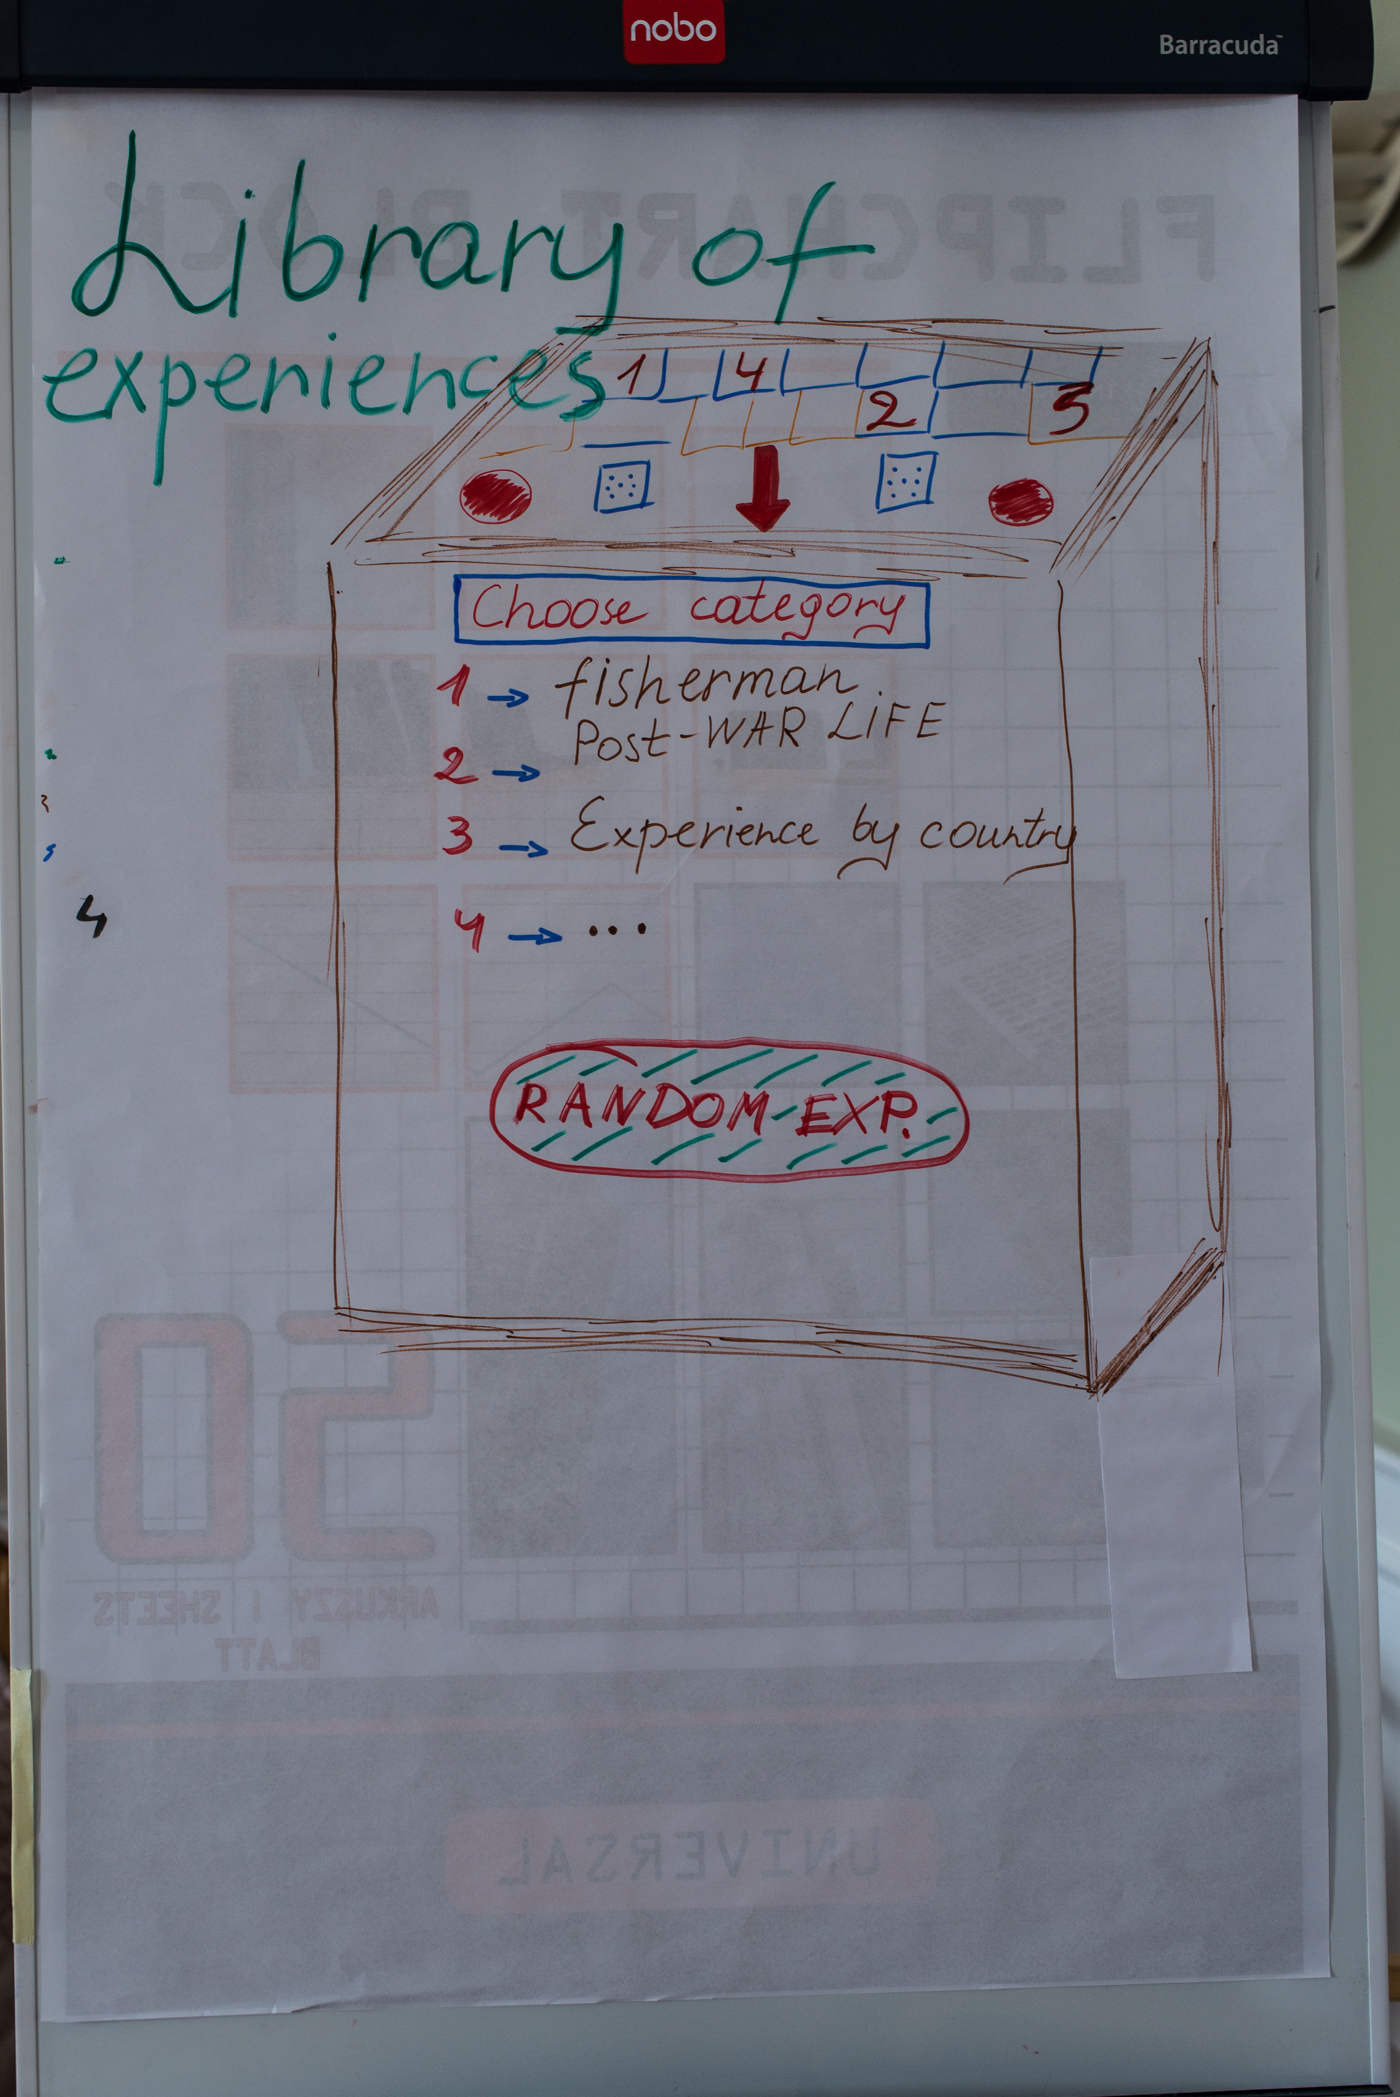 nobo
Barracuda™
FLIPCHART BLOCK
Library of
experiences
1 4
2 3
Choose category
1 → fisherman
2 → Post-WAR LiFE
3 → Experience by country
4
4 → ...
RANDOM EXP.
50
ARKUSZY | SHEETS
BLATT
UNIVERSAL